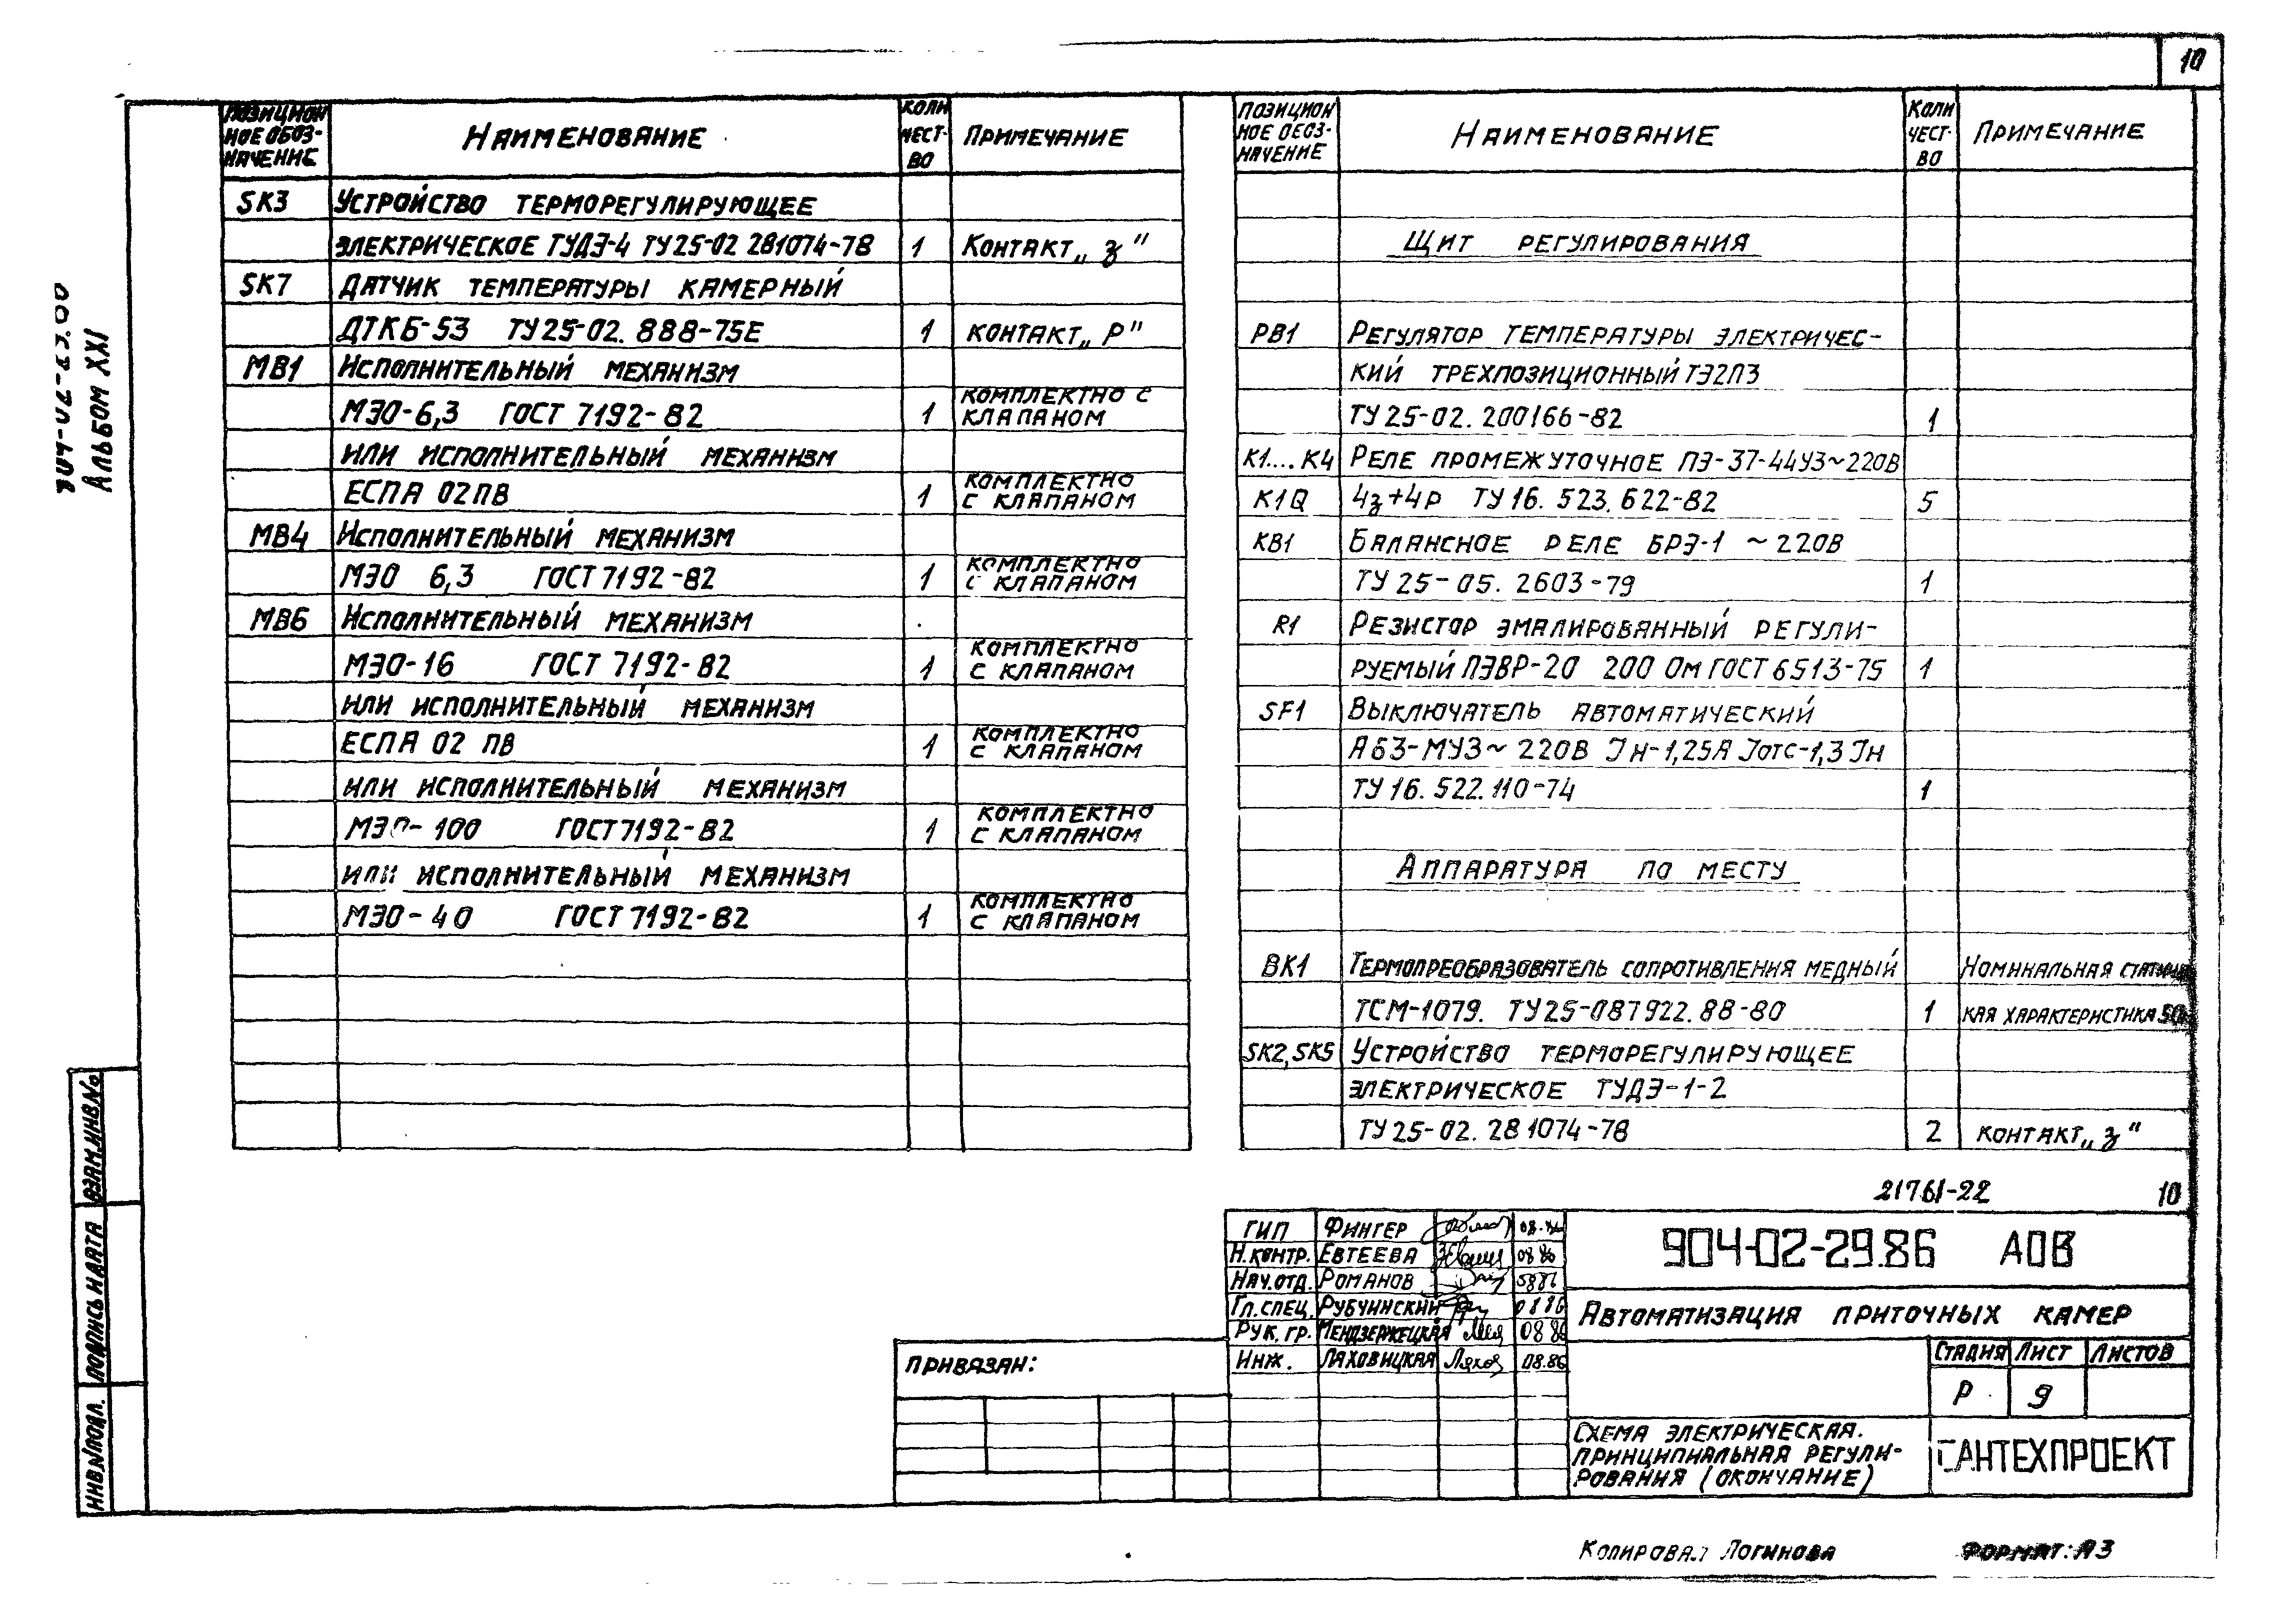 10
904-02-29.86
Альбом XXI
Позицион
ное обоз-
начение
Наименование
Коли
чест-
во
Примечание
SK3 Устройство терморегулирующее
электрическое ТУДЭ-4 ТУ25-02 281074-78 1 Контакт „з"
SK7 Датчик температуры камерный
ДТКБ-53 ТУ25-02. 888-75Е 1 контакт „Р"
МВ1 Исполнительный механизм
МЭО-6,3 ГОСТ 7192-82 1 комплектно с
клапаном
или исполнительный механизм
ЕСПА 02ПВ 1 комплектно
с клапаном
МВ4 Исполнительный механизм
МЭО 6,3 ГОСТ 7192-82 1 комплектно
с клапаном
МВ6 Исполнительный механизм
МЭО-16 ГОСТ 7192-82 1 комплектно
с клапаном
или исполнительный механизм
ЕСПА 02 ПВ 1 комплектно
с клапаном
или исполнительный механизм
МЭО-100 ГОСТ 7192-82 1 комплектно
с клапаном
или исполнительный механизм
МЭО-40 ГОСТ 7192-82 1 комплектно
с клапаном
Позицион
ное обоз-
начение
Наименование
Коли
чест-
во
Примечание
Щит регулирования
РВ1 Регулятор температуры электричес-
кий трехпозиционный ТЭ2П3
ТУ 25-02. 200166-82 1
К1....К4 Реле промежуточное ПЭ-37-44У3~220В
К1Q 4з+4р ТУ 16. 523. 622-82 5
КВ1 Балансное реле БРЭ-1 ~220В
ТУ 25-05. 2603-79 1
R1 Резистор эмалированный регули-
руемый ПЭВР-20 200 Ом ГОСТ 6513-75 1
SF1 Выключатель автоматический
А63-МУ3~220В Iн-1,25А Iотс-1,3Iн
ТУ 16. 522. 110-74 1
Аппаратура по месту
ВК1 Термопреобразователь сопротивления медный Номинальная статичес
ТСМ-1079. ТУ25-087922.88-80 1 кая характеристика
SK2,SK5 Устройство терморегулирующее
электрическое ТУДЭ-1-2
ТУ 25-02. 281074-78 2 контакт „з"
21761-22 10
Взам.инв.№
Подпись и дата
Инв.№подл.
Привязан:
ГИП Фингер 08.86
Н.контр. Евтеева 08 86
Нач.отд. Романов
Гл.спец. Рубчинский 08 86
Рук. гр. Мендзержецкая 08 86
Инж. Ляховицкая Ляхов 08.86
904-02-29.86 АОВ
Автоматизация приточных камер
Стадия Лист Листов
Р 9
Схема электрическая.
принципиальная регули-
рования (окончание)
САНТЕХПРОЕКТ
Копировал Логинова Формат: А3